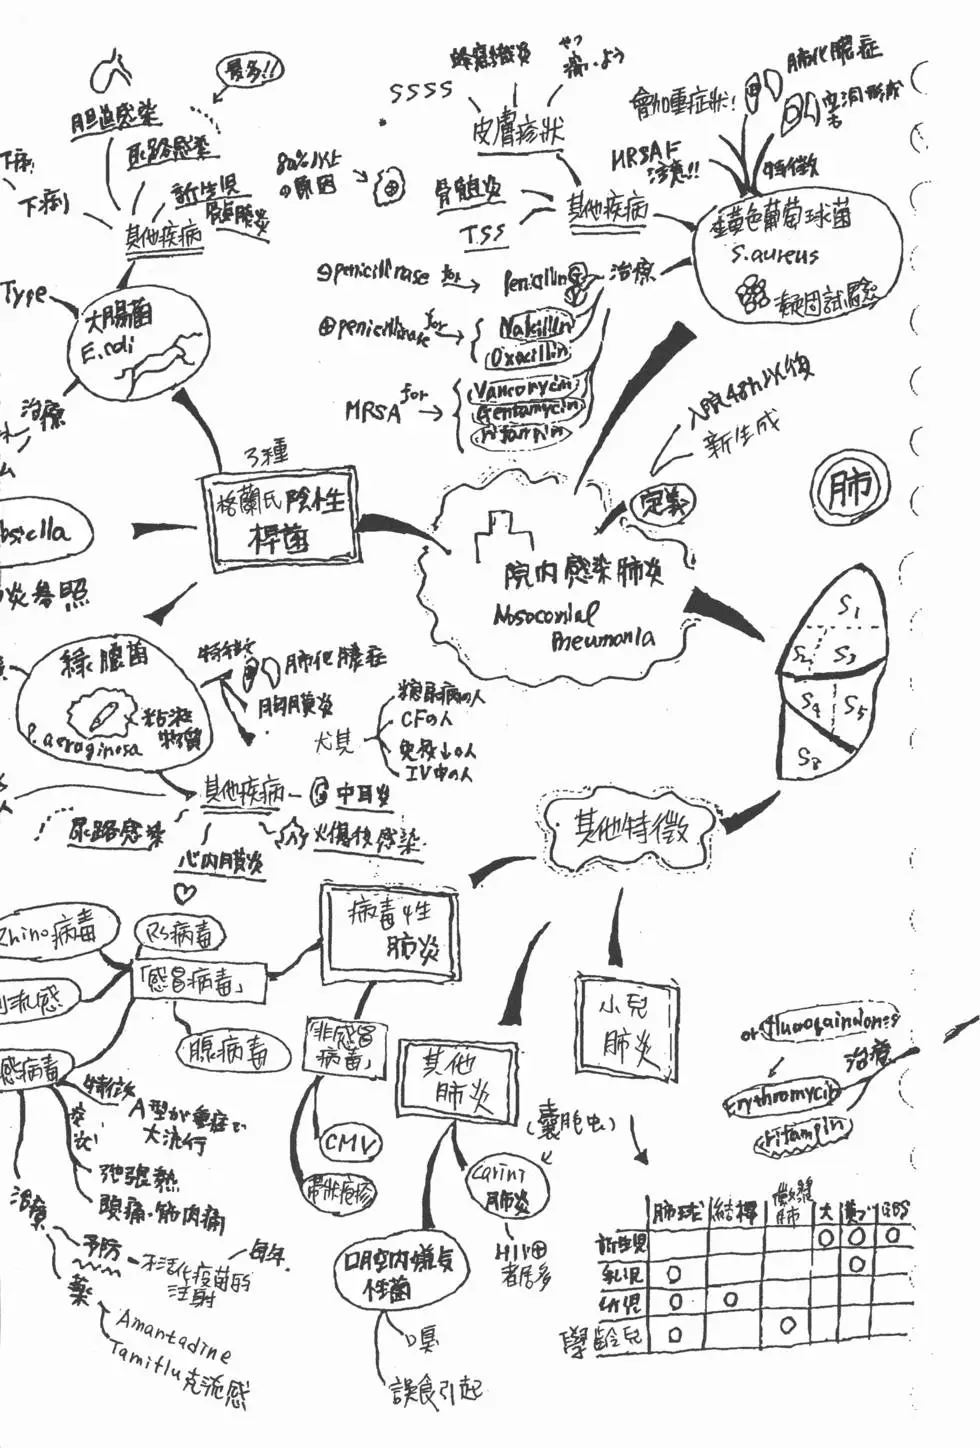 胆道感染
最多!!
尿路感染
新生児
髄膜炎
下痢
其他疾病
80%以上
の原因
SSSS
蜂窩織炎
皮膚疹状
骨髄炎
TSS
其他疾病
會加重症狀!
肺化膿症
空洞形成
MRSA
注意!!
特徵
黃色葡萄球菌
S.aureus
凝固試驗
Type
大腸菌
E.coli
治療
⊖penicillinase for
penicillinG
治療
⊕penicillinase for
Nakillin
Oxacillin
MRSA for
Vancomycin
Gentamycin
rifampin
入院48h以後
新生成
定義
肺
3種
格蘭氏陰性
桿菌
院内感染肺炎
Nosoconial
Pneumonia
bsiella
炎參照
S1
S2
S3
S4
S5
S8
綠膿菌
粘液
物質
P.aeroginosa
特徵
肺化膿症
胸膜炎
尤其
糖尿病の人
CFの人
免疫↓の人
IV中の人
其他疾病
中耳炎
尿路感染
火傷後感染
心内膜炎
其他特徵
病毒性
肺炎
Rhino病毒
RS病毒
「感冒病毒」
流感
腺病毒
感病毒
非感冒
病毒」
其他
肺炎
小兒
肺炎
or fluoroquinolones
治療
Erythromycin
rifampin
特徵
A型が重症で
大流行
弛張熱
頭痛·筋肉痛
治療
予防
不活化疫苗的
注射
毎年
薬
Amantadine
Tamiflu克流感
CMV
帶狀疱疹
(囊胞虫)
Carini
肺炎
HIV⊕
者居多
口腔内嫌気
性菌
臭
誤食引起
肺球 結桿 黴漿肺 大 黃ブ GBS
新生児 ○ ○ ○
乳児 ○ ○
幼児 ○ ○
學齡兒 ○ ○